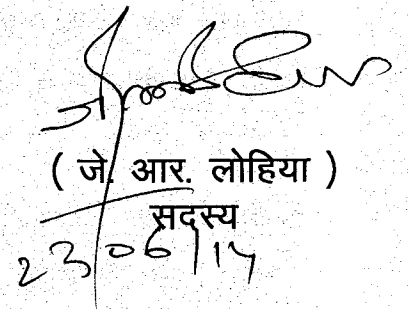 ( जे. आर. लोहिया )
सदस्य
23/06/14